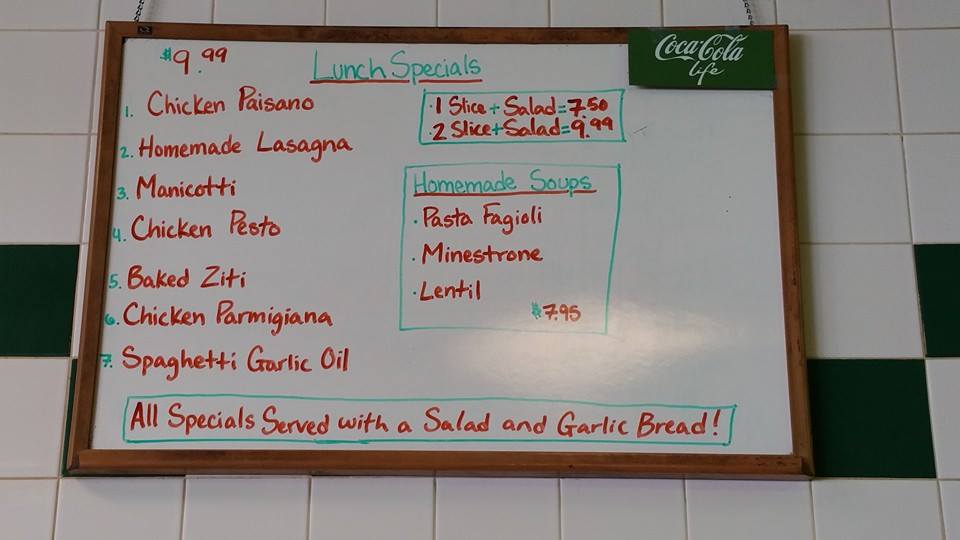 $9.99
Lunch Specials
Coca-Cola
life
1. Chicken Paisano
2. Homemade Lasagna
3. Manicotti
4. Chicken Pesto
5. Baked Ziti
6. Chicken Parmigiana
7. Spaghetti Garlic Oil
· 1 Slice + Salad = 7.50
· 2 Slice + Salad = 9.99
Homemade Soups
· Pasta Fagioli
· Minestrone
· Lentil
$7.95
All Specials Served with a Salad and Garlic Bread!